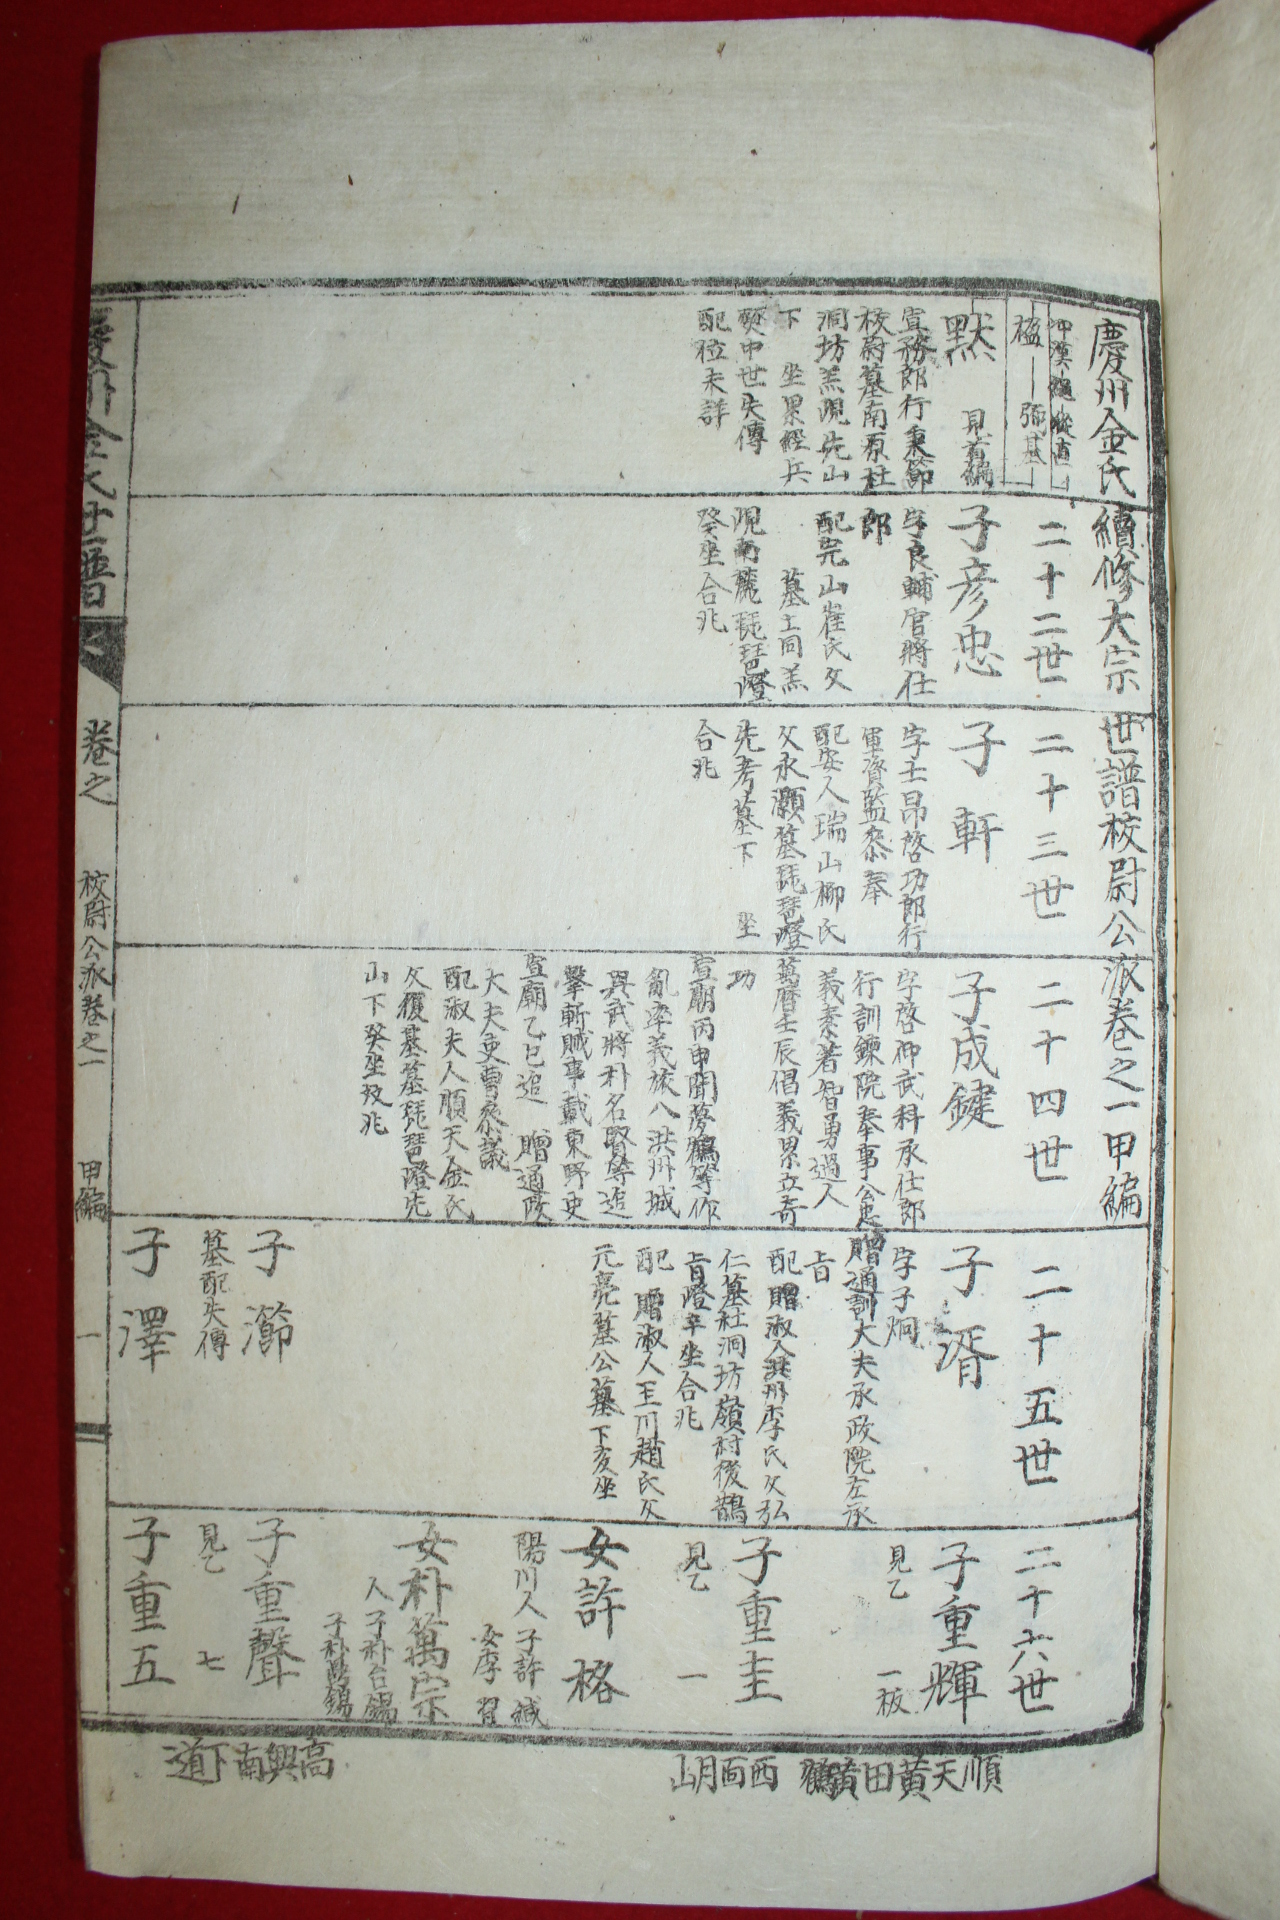 慶州金氏續修大宗世譜校尉公派卷之一甲編
楹 弼基
默 見首編
宣務郎行秉節
校尉墓南原杜
洞坊羔峴先山
下 坐累經兵
燹中世失傳
配位未詳
二十二世
子彦忠
字良輔官將仕
郎
配完山崔氏父
墓上同羔
峴南麓琵琶嶝
癸坐合兆
二十三世
子軒
字士昂啓功郎行
軍資監叅奉
配安人瑞山柳氏
父永灝墓琵琶嶝
先考墓下 坐
合兆
二十四世
子成鍵
字啓仰武科承仕郎
行訓鍊院奉事公忠
義素著智勇過人
萬曆壬辰倡義累立奇
功
宣廟丙申聞夢鶴等作
亂率義旅入洪州城
與武將朴名賢等追
擊斬賊事載東野史
宣廟乙巳追 贈通政
大夫吏曹叅議
配淑夫人順天金氏
父復基墓琵琶嶝先
山下癸坐双兆
二十五世
子湑
字子炯
贈通訓大夫承政院左承
旨
配 贈淑人洪州李氏父弘
仁墓杜洞坊嶺村後鵲
旨嶝辛坐合兆
配 贈淑人玉川趙氏父
元亮墓公墓下亥坐
子瀄
墓配失傳
子澤
二十六世
子重輝
見乙 一板
子重圭
見乙 一
女許格
陽川人 子許緎
女李習
女朴萬宗
人 子朴台錫
子重聲
見乙 七
子重五
順天黃田黃鶴 西面月山
高興南下道
卷之 校尉公派卷之一 甲編 一